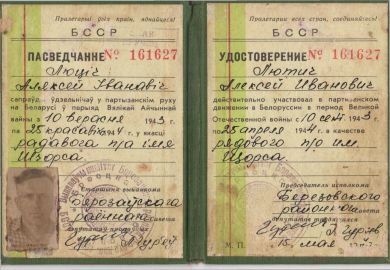 Пралетарыі ўсіх краін, яднайцеся!
БССР
ПАСВЕДЧАННЕ № 161627
Люціч
Аляксей Іванавіч
сапраўды ўдзельнічаў у партызанскім руху
на Беларусі ў перыяд Вялікай Айчыннай
вайны з 10 верасня 1943 г.
па 25 красавік 1944 г. у якасці
радавога п/а імя
Шчорса
Старшыня выканкома
Бярозаўскага
раённага Савета
дэпутатаў працоўных
Пролетарии всех стран, соединяйтесь!
БССР
УДОСТОВЕРЕНИЕ № 161627
Лютич
Алексей Иванович
действительно участвовал в партизанском
движении в Белоруссии в период Великой
Отечественной войны с 10 сент 1943 г.
по 25 апреля 1944 г. в качестве
рядового п/о им.
Щорса.
Председатель исполкома
Березовского
районного Совета
депутатов трудящихся
М. П.
15 мая